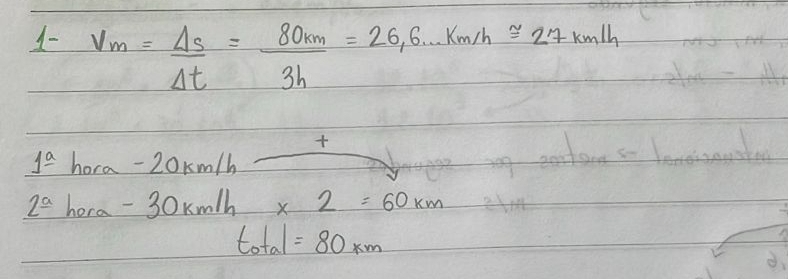 1- Vm = Δs = 80km = 26,6... Km/h ≅ 27 km/h
Δt 3h
+
1ª hora - 20km/h
2ª hora - 30km/h x 2 = 60 km
total = 80 km